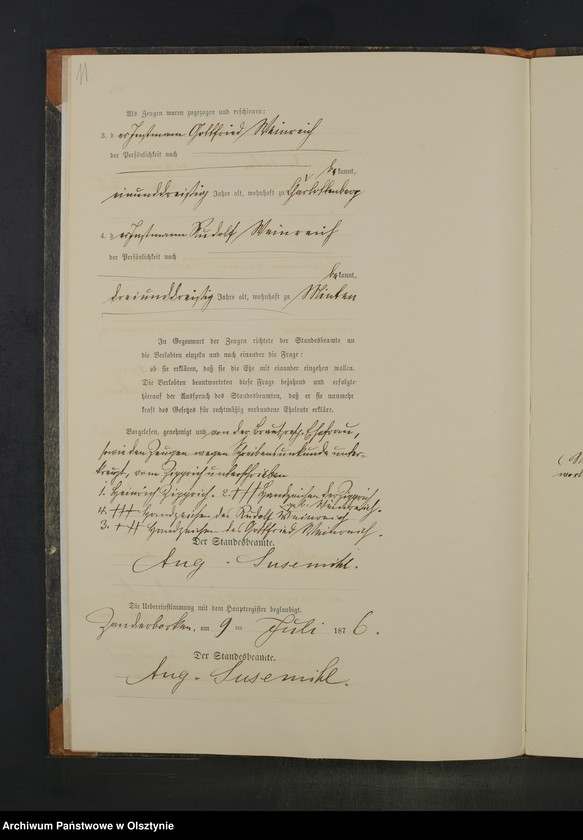 11
Als Zeugen waren zugezogen und erschienen:
3. der Instmann Gottfried Weinreich
der Persönlichkeit nach
bekannt,
einunddreißig Jahre alt, wohnhaft zu Charlottenberg
4. der Instmann Rudolf Weinreich
der Persönlichkeit nach
bekannt,
dreiunddreißig Jahre alt, wohnhaft zu Minten
In Gegenwart der Zeugen richtete der Standesbeamte an
die Verlobten einzeln und nach einander die Frage:
ob sie erklären, daß sie die Ehe mit einander eingehen wollen.
Die Verlobten beantworteten diese Frage bejahend und erfolgte
hierauf der Ausspruch des Standesbeamten, daß er sie nunmehr
kraft des Gesetzes für rechtmäßig verbundene Eheleute erkläre.
Vorgelesen, genehmigt und von der Braut resp. Ehefrau,
sowie den Zeugen wegen Schreibensunkunde unter-
kreuzt, vom Zipprich unterschrieben
1. Heinrich Zipprich. 2. +++ Handzeichen der Zipprich
geb. Weinreich.
4. +++ Handzeichen des Rudolf Weinreich
3. +++ Handzeichen des Gottfried Weinreich.
Der Standesbeamte.
Aug. Susemihl.
Die Uebereinstimmung mit dem Hauptregister beglaubigt.
am 9 ten Juli 1876.
Der Standesbeamte.
Aug. Susemihl.
Archiwum Państwowe w Olsztynie